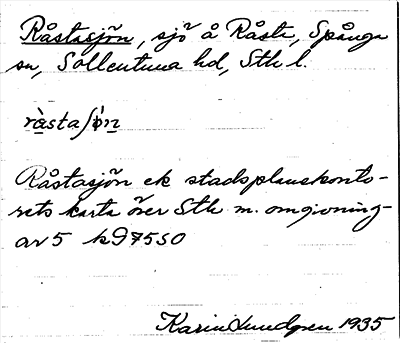 Råstasjön, sjö å Råsta, Spånga
sn, Sollentuna hd, Sth l.
ràstaʃö́n
Råstasjön ek stadsplanskonto-
rets karta över Sth m. omgivning-
ar 5 k9 75 SO
Karin Lundgren 1935